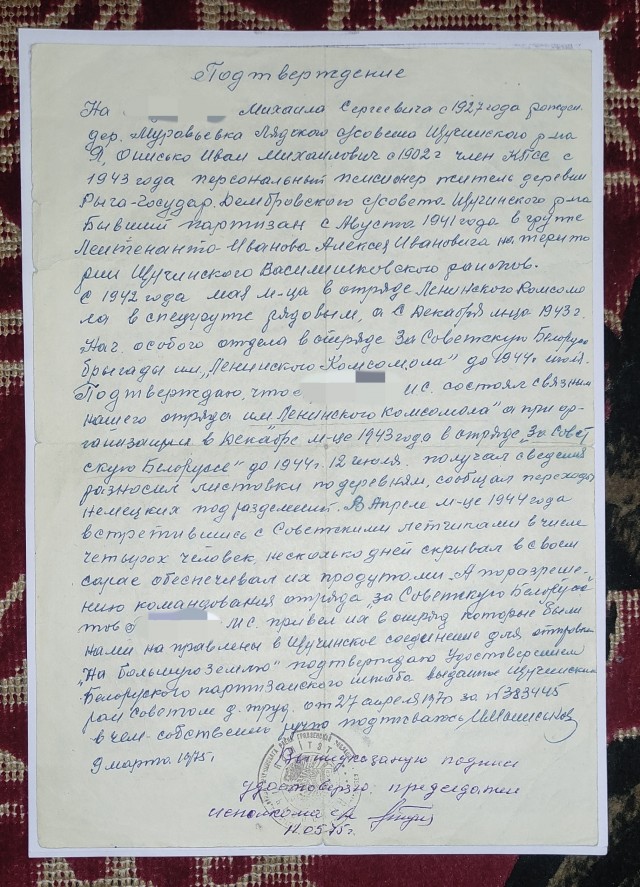 Подтверждение
На Михаила Сергеевича с 1927 года рожден.
дер. Муравьевка Лядского с/совета Щучинского р-на
Я, Онисько Иван Михайлович с 1902 г член КПСС с
1943 года персональный пенсионер житель деревни
Государ. Дембровского с/совета Щучинского р-на
Бывший партизан с Августа 1941 года в группе
Лейтенанта Иванова Алексея Ивановича на терито
рии Щучинского Василишковского районов.
С 1942 года мая м-ца в отряде Ленинского Комсомо
ла в спецгруппе рядовым, а с Декабря м-ца 1943 г.
Нач. особого отдела в отряде За Советскую Белорус
бригады им. „Ленинского Комсомола" до 1944 г июля.
Подтверждаю, что с состоял связным
нашего отряда им Ленинского комсомола" а при ор-
ганизации в Декабре м-це 1943 года в отряде „За Совет
скую Белорусь" до 1944 г. 12 июля. получал сведения
разносил листовки по деревням, сообщал переходы
немецких подразделений. В Апреле м-це 1944 года
встретившись с Советскими летчиками в числе
четырех человек, несколько дней скрывал в своем
сарае обеспечивал их продуктами. А по разреше-
нию командования отряда „за Советскую Белорусь"
М С. привел их в отряд которые были
нами направлены в Щучинское соединение для отправки
„На большую землю" подтверждаю Удостоверением
Белоруского партизанского штаба выданое Щучинским
рай советом д. труд. от 27 апреля 1970 за № 383445
в чем собственно ручно подписываюсь
9 марта 1975 г.
подпись
удостоверяю: председатель
исполкома с/с
11.05.75 г.